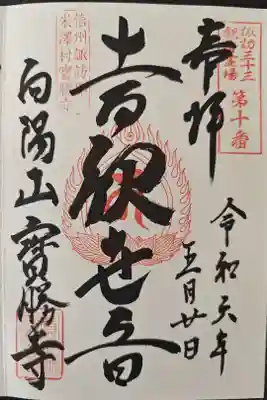 諏訪三十三
観音霊場
第十番
奉拝
令和六年
五月廿日
十一面観世音
信州諏訪
米澤村寶勝寺
白陽山寶勝寺